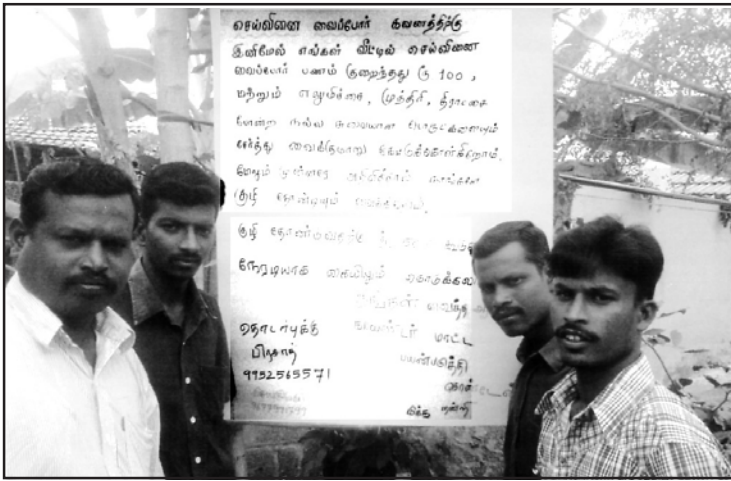 செய்வினை வைப்போர் கவனத்திற்கு
இனிமேல் எங்கள் வீட்டில் செய்வினை
வைப்போர் பணம் குறைந்தது ரூ 100,
மற்றும் எலுமிச்சை, முந்திரி, திராட்சை
போன்ற நல்ல சுவையான பொருட்களையும்
சேர்த்து வைக்குமாறு கேட்டுக்கொள்கிறோம்.
மேலும் முன்னரே அறிவித்தால் நாங்களே
குழி தோண்டியும் வைக்கலாம்.
குழி தோண்டுவதற்கு
நேரடியாக கையிலும் கொடுக்கலா
தொடர்புக்கு
மாட்ட
பிரசாத்
9952565571
மிக்க நன்றி